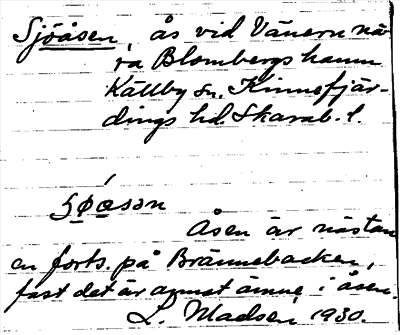 Sjöåsen, ås vid Vänern nä-
ra Blombergs hamn
Källby sn. Kinnefjär-
dings hd Skarab. l.
Åsen är nästan
en forts. på Brännebacken,
fast det är annat ämne i åsen.
L. Madsén 1930.